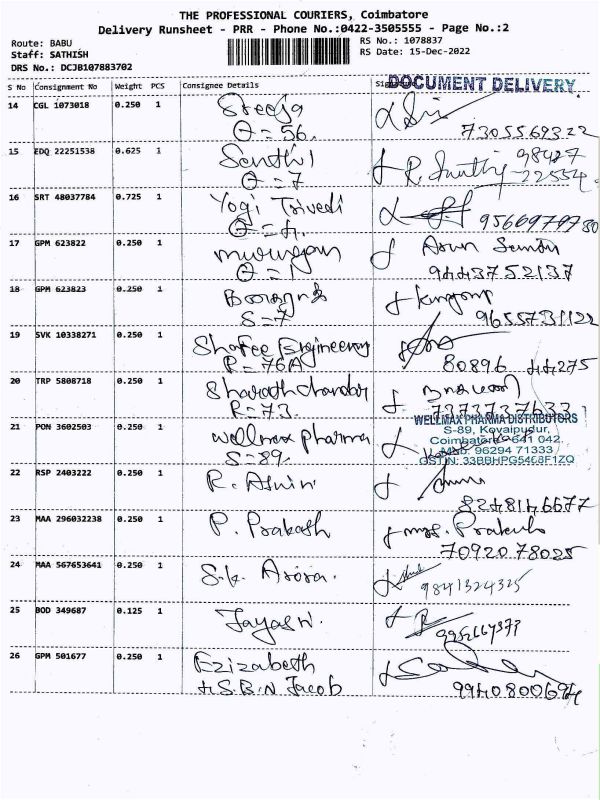 THE PROFESSIONAL COURIERS, Coimbatore
Delivery Runsheet - PRR - Phone No.:0422-3505555 - Page No.:2
Route: BABU
Staff: SATHISH
DRS No.: DCJB107883702
RS No.: 1078837
RS Date: 15-Dec-2022
S No Consignment No Weight PCS Consignee Details
DOCUMENT DELIVERY
14 CGL 1073018 0.250 1 Sreeja
Q = 56. 7305569322
15 EDQ 22251538 0.625 1 Senthil 98427
Q = 7 22554
16 SRT 48037784 0.725 1 Yogi Trivedi
Q = 4.
17 GPM 623822 0.250 1 murugan Arun
Q = 1 9443752137
18 GPM 623823 0.250 1
S = 7 9655731122
19 SVK 10338271 0.250 1 Shafee Engineering
R = 76A 80896 44275
20 TRP 5808718 0.250 1 Sharath chandar
R = 73. 7373737633
21 PON 3602503 0.250 1 wellmax pharma
S = 89.
WELLMAX PHARMA DISTRIBUTORS
S-89, Kovaipudur,
Coimbatore - 641 042.
Mob: 96294 71333
GSTIN: 33BBHPG5468F1ZQ
22 RSP 2403222 0.250 1 R. Aswin
8248146677
23 MAA 296032238 0.250 1 P. Prakash
7092078025
24 MAA 567653641 0.250 1 S.k. Arora.
9841324325
25 BOD 349687 0.125 1
26 GPM 501677 0.250 1 Ezizabeth
S.B.N Jacob 9940800694